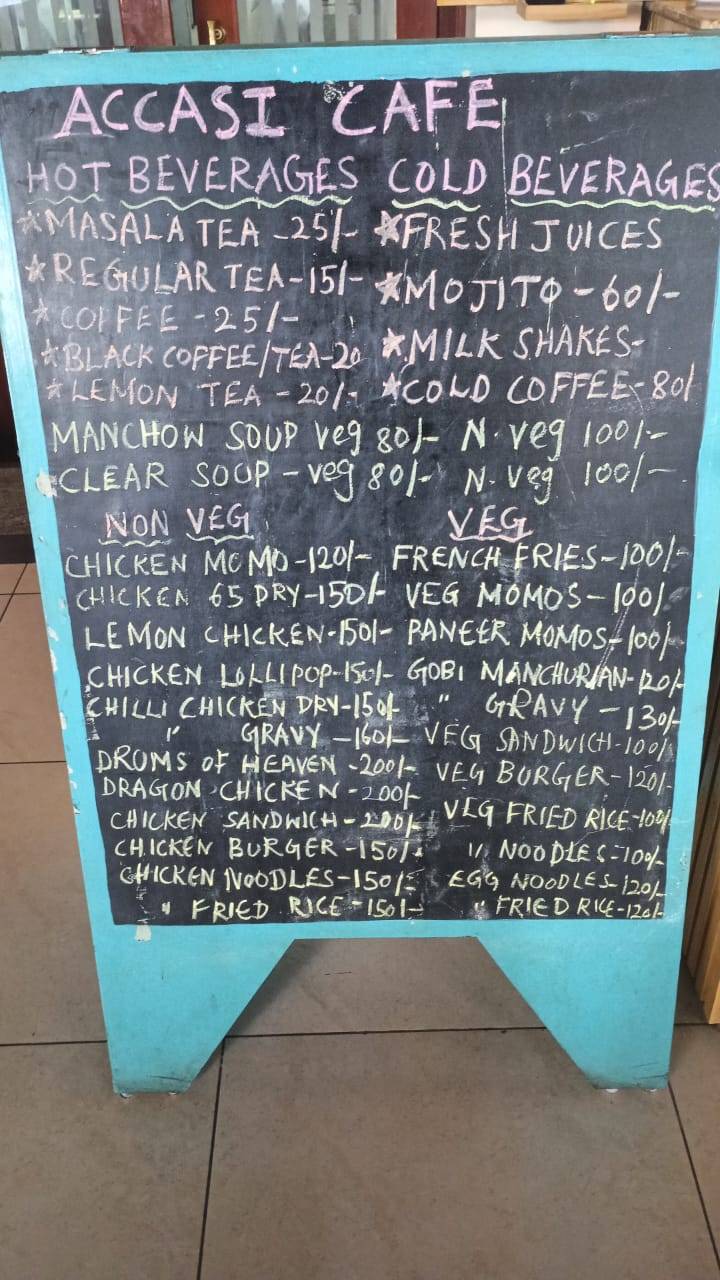 ACCASI CAFE
HOT BEVERAGES COLD BEVERAGES
*MASALA TEA -25/- *FRESH JUICES
*REGULAR TEA-15/- *MOJITO-60/-
*COFFEE -25/- *MILK SHAKES-
*BLACK COFFEE/TEA-20 *COLD COFFEE-80/-
*LEMON TEA -20/-
MANCHOW SOUP veg 80/- N.veg 100/-
CLEAR SOOP - veg 80/- N.Veg 100/-
NON VEG VEG
CHICKEN MOMO-120/- FRENCH FRIES-100/-
CHICKEN 65 DRY-150/- VEG MOMOS-100/
LEMON CHICKEN-150/- PANEER MOMOS-100/
CHICKEN LOLLIPOP-150/- GOBI MANCHURIAN-120/-
CHILLI CHICKEN DRY-150/- " GRAVY -130/-
" GRAVY -160/- VEG SANDWICH-100/
DRUMS OF HEAVEN -200/- VEG BURGER-120/-
DRAGON CHICKEN -200/- VEG FRIED RICE-100/
CHICKEN SANDWICH-200/- " NOODLES-100/-
CHICKEN BURGER-150/- EGG NOODLES-120/-
CHICKEN NOODLES-150/- " FRIED RICE-120/-
" FRIED RICE-150/-